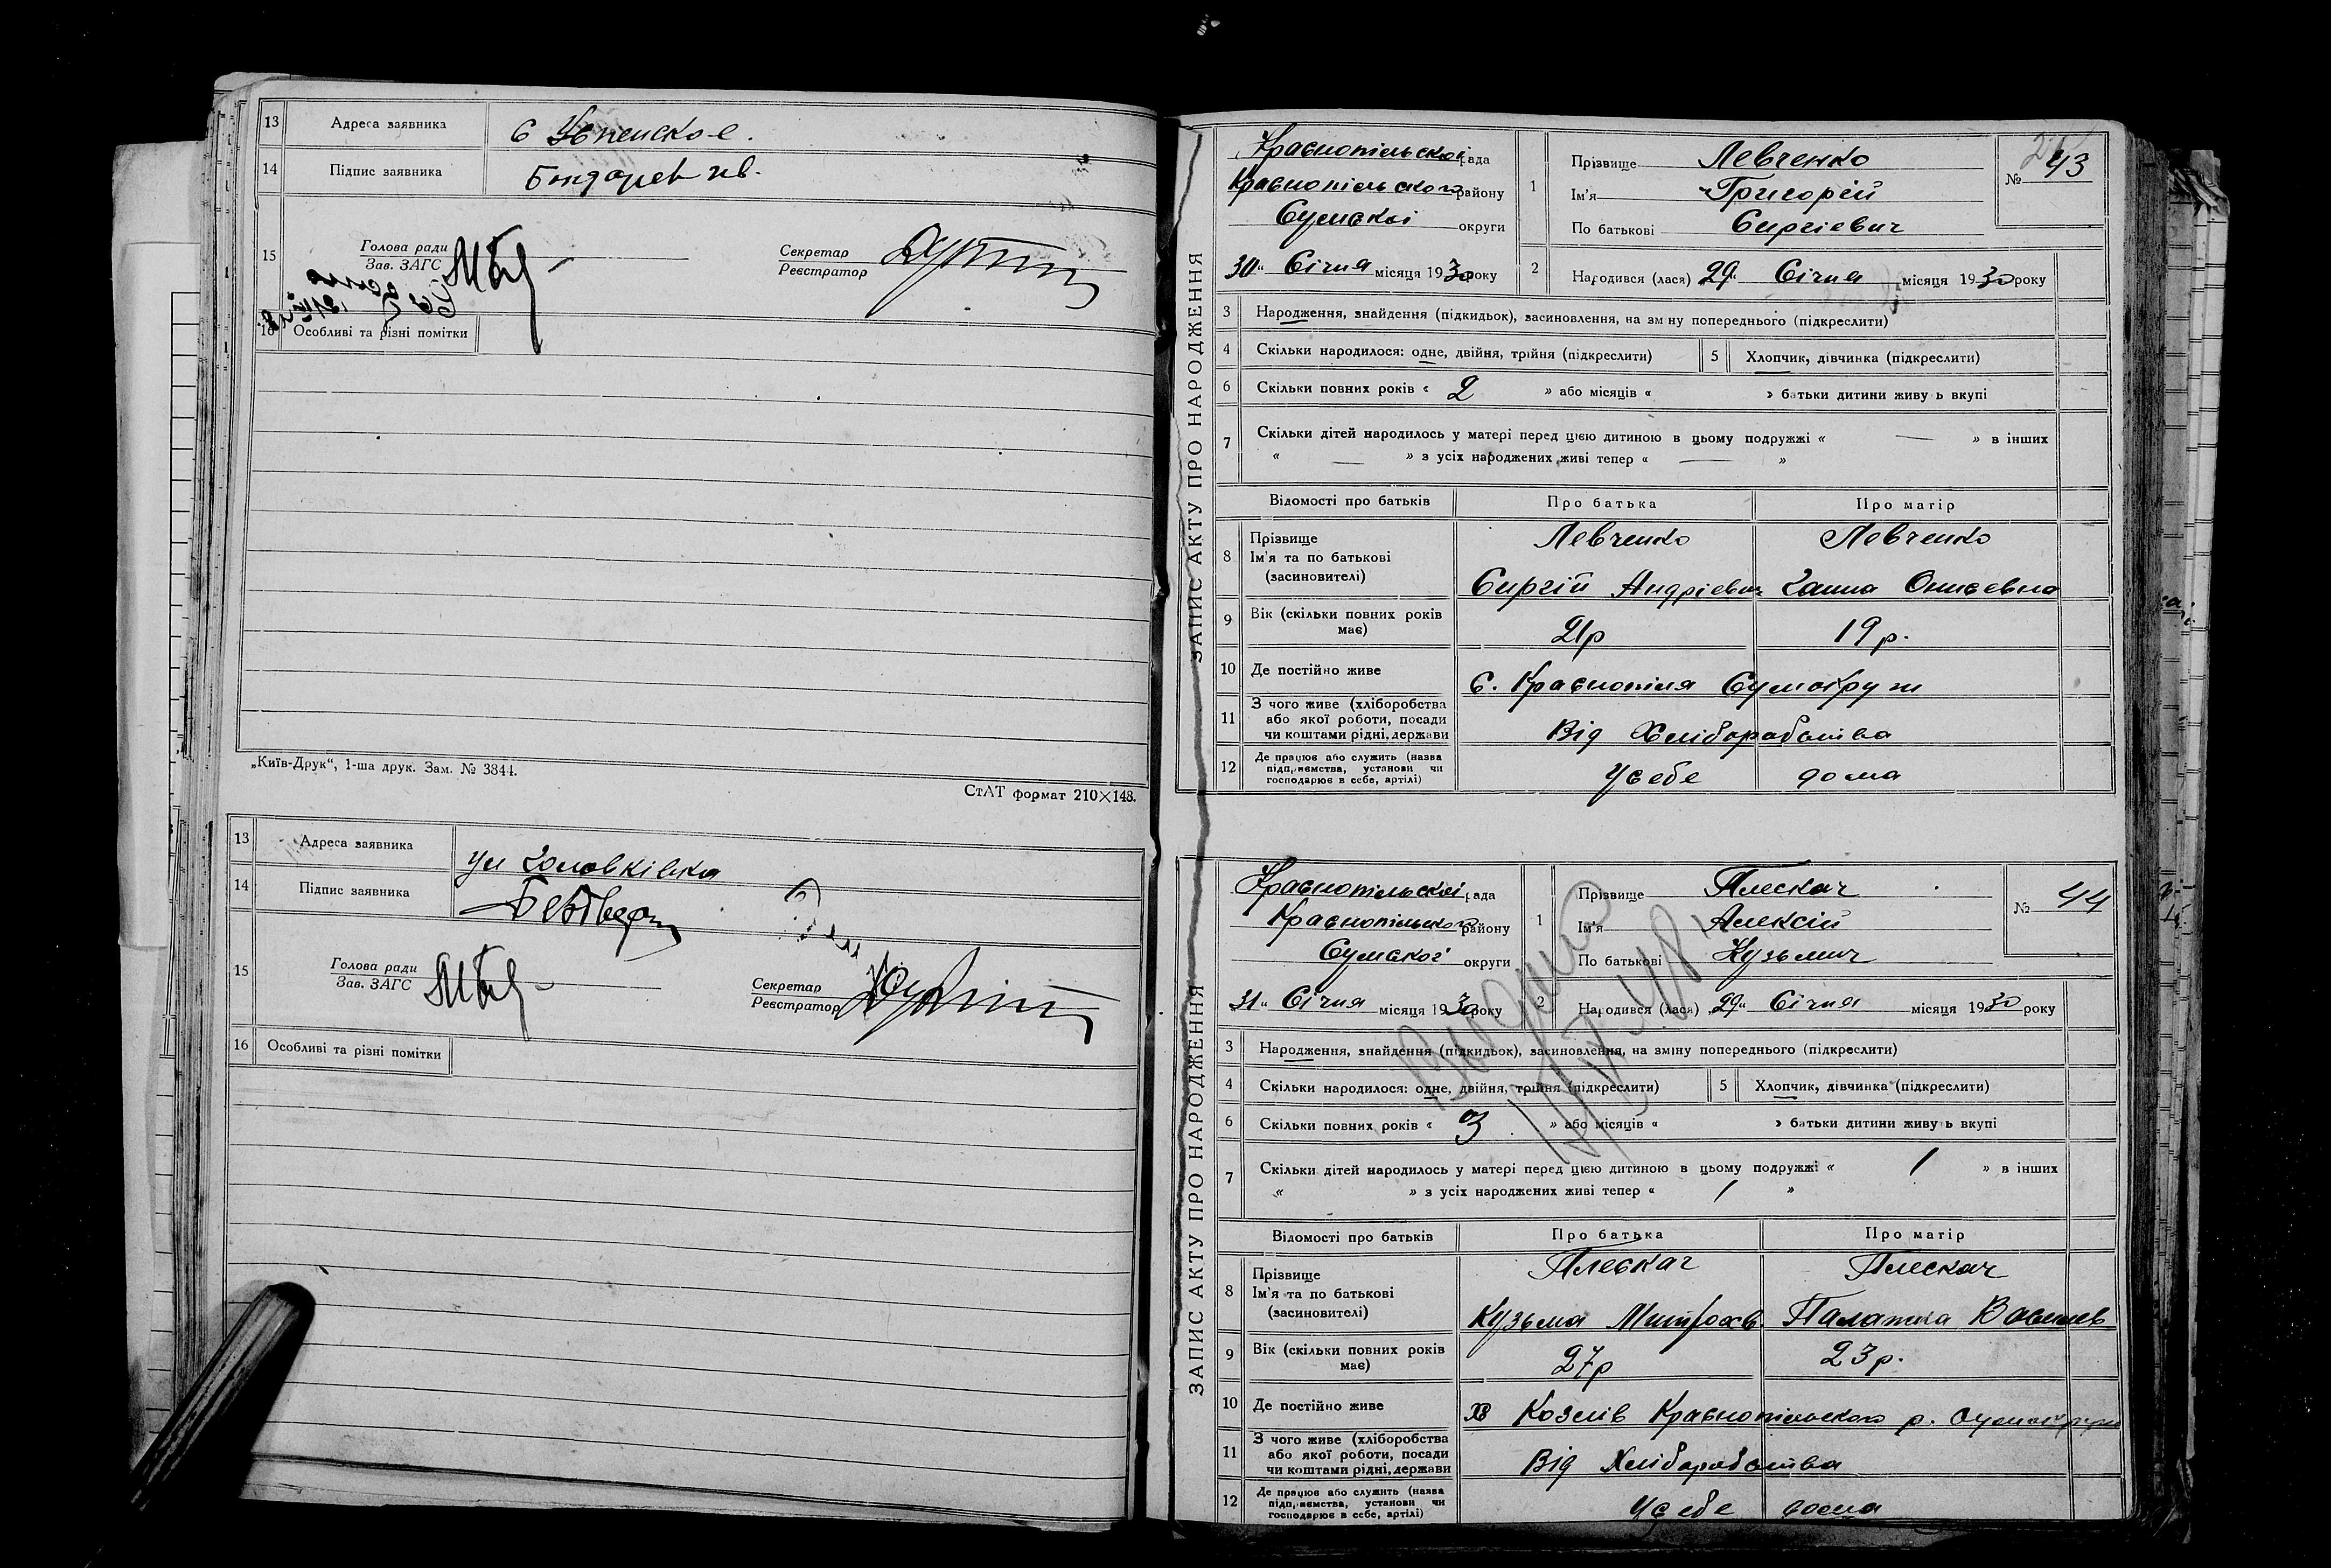 13 Адреса заявника с Успенское.
14 Підпис заявника Бондарев
15 Голова ради
Зав. ЗАГС
Секретар
Реєстратор
16 Особливі та різні помітки
„Київ-Друк“, 1-ша друк. Зам. № 3844.
СтАТ формат 210×148.
13 Адреса заявника ул Головківка
14 Підпис заявника
15 Голова ради
Зав. ЗАГС
Секретар
Реєстратор
16 Особливі та різні помітки
ЗАПИС АКТУ ПРО НАРОДЖЕННЯ
Краснопільскої рада
Краснопільского району
Сумскої округи
30 „ Січня місяця 1930 року
1 Прізвище Левченко
Ім'я Григорій
По батькові Сиргієвич
№ 43
2 Народився (лася) 29 „ Січня місяця 1930 року
3 Народження, знайдення (підкидьок), засиновлення, на зміну попереднього (підкреслити)
4 Скільки народилося: одне, двійня, трійня (підкреслити) 5 Хлопчик, дівчинка (підкреслити)
6 Скільки повних років « 2 » або місяців « » батьки дитини живуть вкупі
7 Скільки дітей народилось у матері перед цією дитиною в цьому подружжі « — » в інших
« — » з усіх народжених живі тепер « — »
Відомості про батьків Про батька Про матір
8 Прізвище Левченко Левченко
Ім'я та по батькові
(засиновителі) Сиргій Андрієвич Ганна Онисєвна
9 Вік (скільки повних років має) 21р 19р.
10 Де постійно живе С. Краснопілля Сумокруги
11 З чого живе (хліборобства
або якої роботи, посади
чи коштами рідні, держави Від Хліборобства
12 Де працює або служить (назва
підприємства, установи чи
господарює в себе, артілі) У себе дома
ЗАПИС АКТУ ПРО НАРОДЖЕННЯ
Краснопільскої рада
Краснопільского району
Сумскої округи
„31 „ Січня місяця 1930 року
1 Прізвище Плескач
Ім'я Алексій
По батькові Кузьмич
№ 44
2 Народився (лася) „29 „ Січня місяця 1930 року
3 Народження, знайдення (підкидьок), засиновлення, на зміну попереднього (підкреслити)
4 Скільки народилося: одне, двійня, трійня (підкреслити) 5 Хлопчик, дівчинка (підкреслити)
6 Скільки повних років « 3 » або місяців « » батьки дитини живуть вкупі
7 Скільки дітей народилось у матері перед цією дитиною в цьому подружжі « 1 » в інших
« » з усіх народжених живі тепер « 1 »
Відомості про батьків Про батька Про матір
8 Прізвище Плескач Плескач
Ім'я та по батькові
(засиновителі) Кузьма Митрохв. Палажка Васильев
9 Вік (скільки повних років має) 27р 23р.
10 Де постійно живе Х Козлів Краснопільского р. Сумокруги
11 З чого живе (хліборобства
або якої роботи, посади
чи коштами рідні, держави Від Хліборобства
12 Де працює або служить (назва
підприємства, установи чи
господарює в себе, артілі) У себе дома